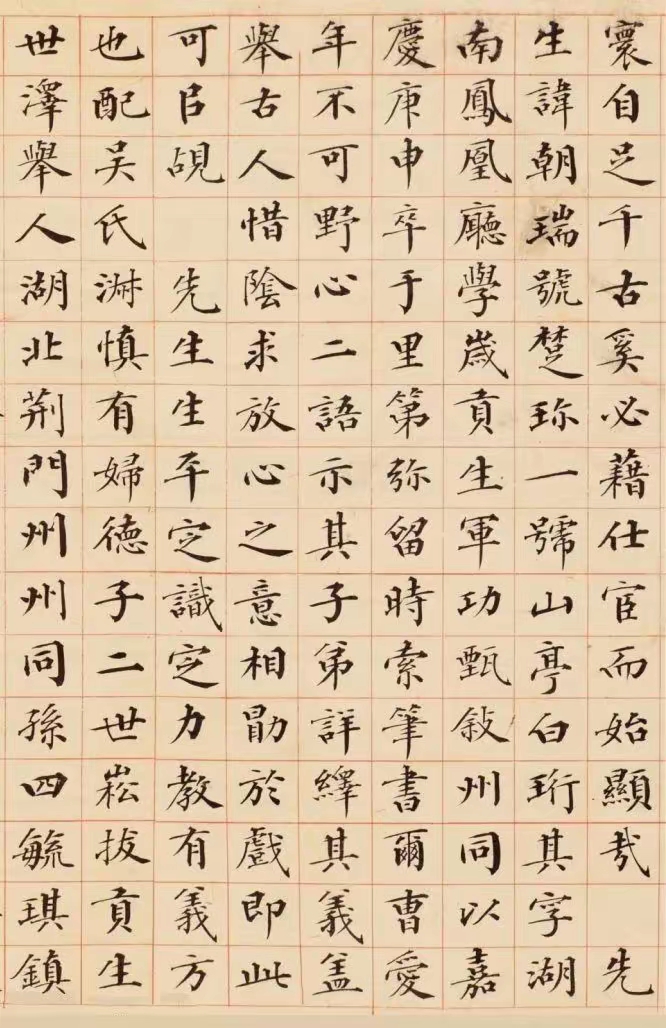 寰自足千古奚必藉仕宦而始顯哉　先
生諱朝瑞號楚珎一號山亭白珩其字湖
南鳳凰廳學歲貢生軍功甄敍州同以嘉
慶庚申卒于里第弥留時索筆書爾曹愛
年不可野心二語示其子弟詳繹其義盖
舉古人惜陰求放心之意相勖於戲即此
可㠯覘　先生生平定識定力教有義方
也配吴氏淋慎有婦德子二世崧拔貢生
世澤舉人湖北荆門州州同孫四毓琪鎮